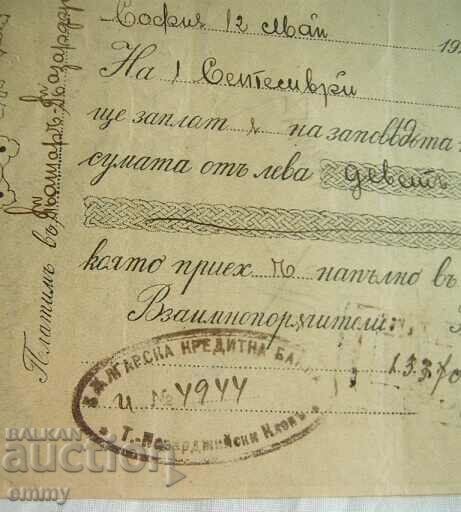 София 12 Май 19
На 1 Септемврѝ
ще заплат я на заповѣдьта
сумата отъ лева деветь
която приех ъ напълно въ
Взаимнопоръчители:
1337
БЪЛГАРСКА КРЕДИТНА БА
И № 4944
Т.-Пазарджийски Клонъ
Платимъ въ Пазарджикъ
BALKAN
auction
emmy